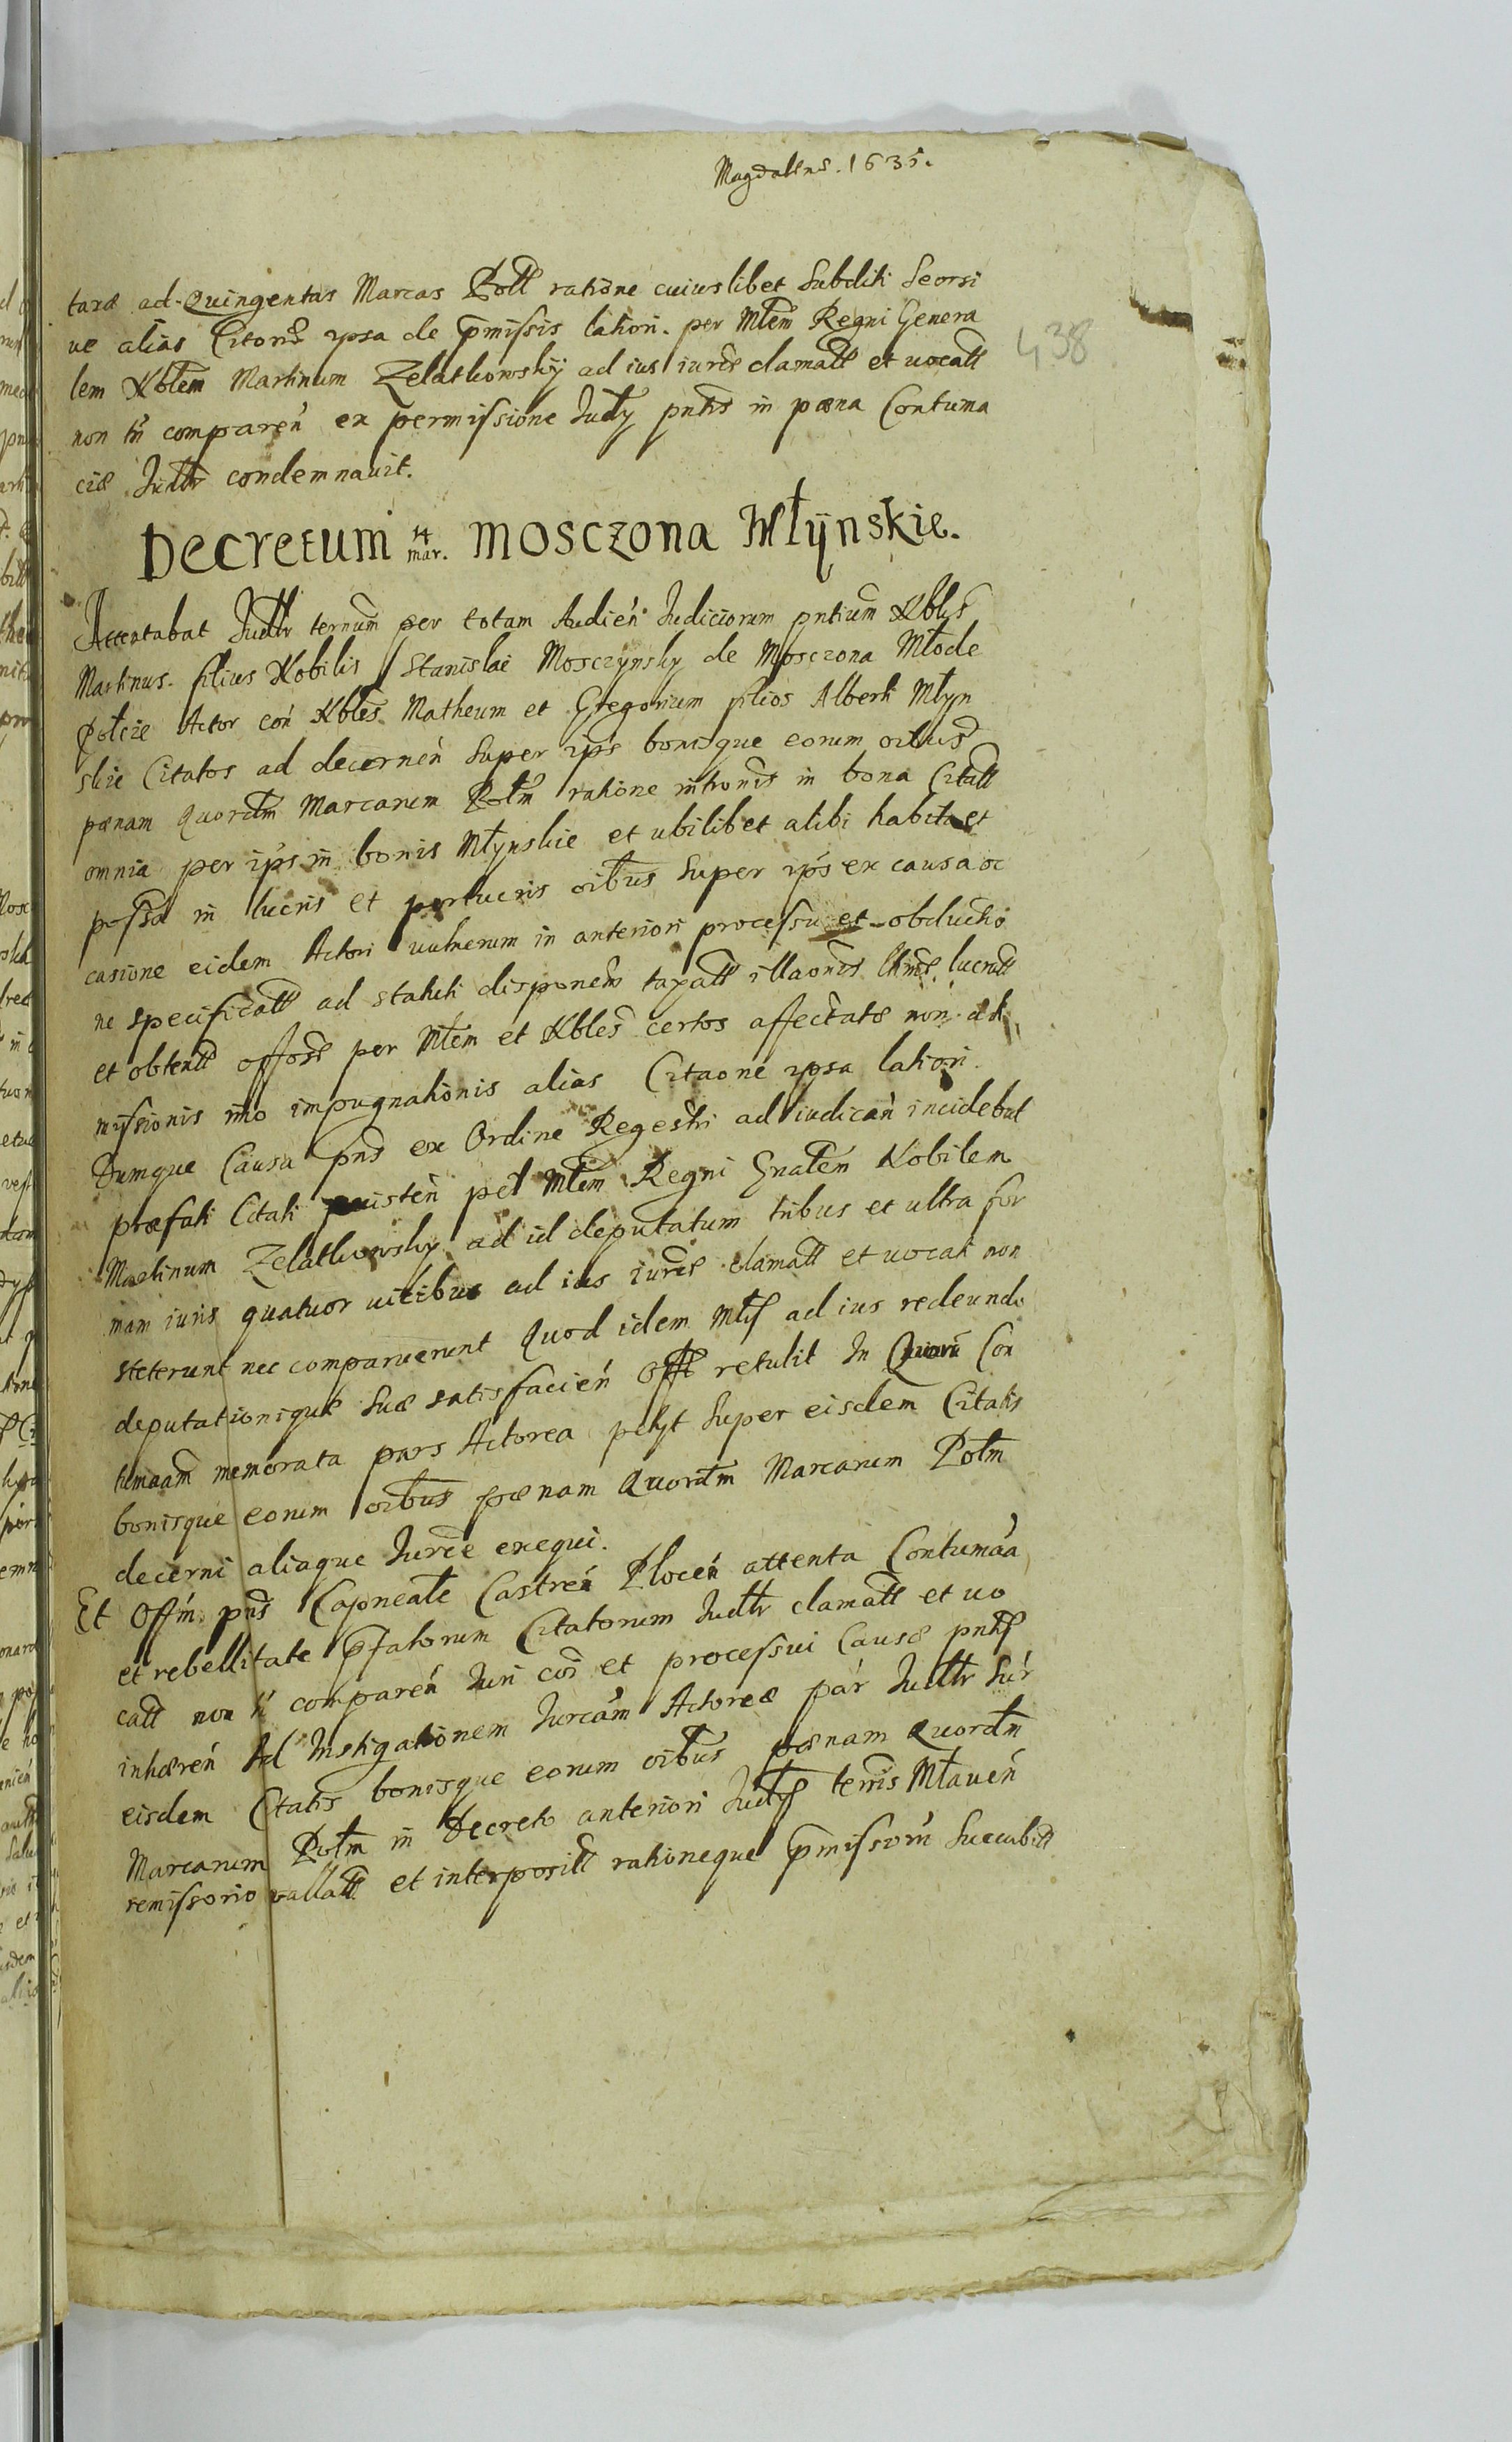 Magdalene. 1635.
438
taræ ad Quingentas Marcas Poll ratione cuiuslibet Subditi Seorsi
ue alias Citoris ypsa de pmissis latiori. per Mlem Regni Genera
lem Nblem Martinum Zelathowsky ad ius iurde clamatt et uocatt
non tn comparen ex permissione Judy pntis in pæna Contuma
ciæ Judtr condemnauit.
Decretum 14 mar. Mosczona Młÿnskie.
Attentabat Judtr ternum per totam Audien Judiciorum pntium Nblis
Martinus filius Nobilis Stanislai Mosczynsky de Mosczona Młode
Połcie Actor con Nbles Matheum et Gregorium filios Alberti Młyn
skie Citatos ad decernen super ips bonisque eorum oibus
pænam Quordm Marcarum Polm ratione intronis in bona Citatt
omnia per ips in bonis Młynskie et ubilibet alibi habita et
possa in lucris et perlucris oibus super ips ex causa oc
casione eidem Actori uulnerum in anteriori processu et obductio
ne specificatt ad statuti disponem taxatt illaonis lucratt
et obtentt offose per Mlem et Nbles certos affectatæ non ad
missionis imo impugnationis alias Citaone ypsa latiori.
Dumque Causa pns ex Ordine Regestri ad iudican incidebat
præfati Citati existen per Mlem Regni Gnalem Nobilem
Martinum Zelathowsky ad id deputatum tribus et ultra for
mam iuris quatuor uicibus ad ius iurde clamatt et uocati non
steterunt nec comparuerunt Quod idem Mlis ad ius redeundo
deputationique suæ satisfacien Offo retulit In Quoru Con
tumaam memorata pars Actorea petyt super eisdem Citatis
bonisque eorum oibus pænam Quordm Marcarum Polm
decerni aliaque Jurde exequi.
Et Offm pns Capneale Castren Plocen attenta Contumaa
et rebellitate pfatorum Citatorum Judtr clamatt et uo
catt non tn comparen Juri coi et processui Causæ pntis
inhæren Ad Instigationem Jurcam Actoreæ par Judtr sur
eisdem Citatis bonisque eorum oibus pænam Quordm
Marcarum Polm in Decreto anteriori Judys terris Mlauen
remissorio uallatt et interpositt rationeque pmissoru succubitt